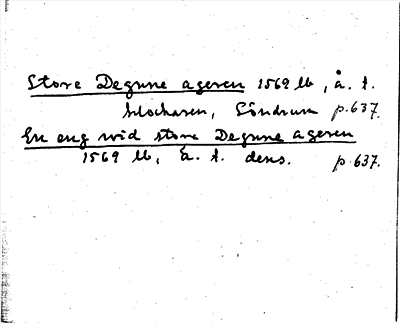 Store Degnne ageren 1569 lb, å. t.
klockaren, Söndrum p.637.
En eng wid store Degnne ageren
1569 lb, ä. t. dens. p.637.